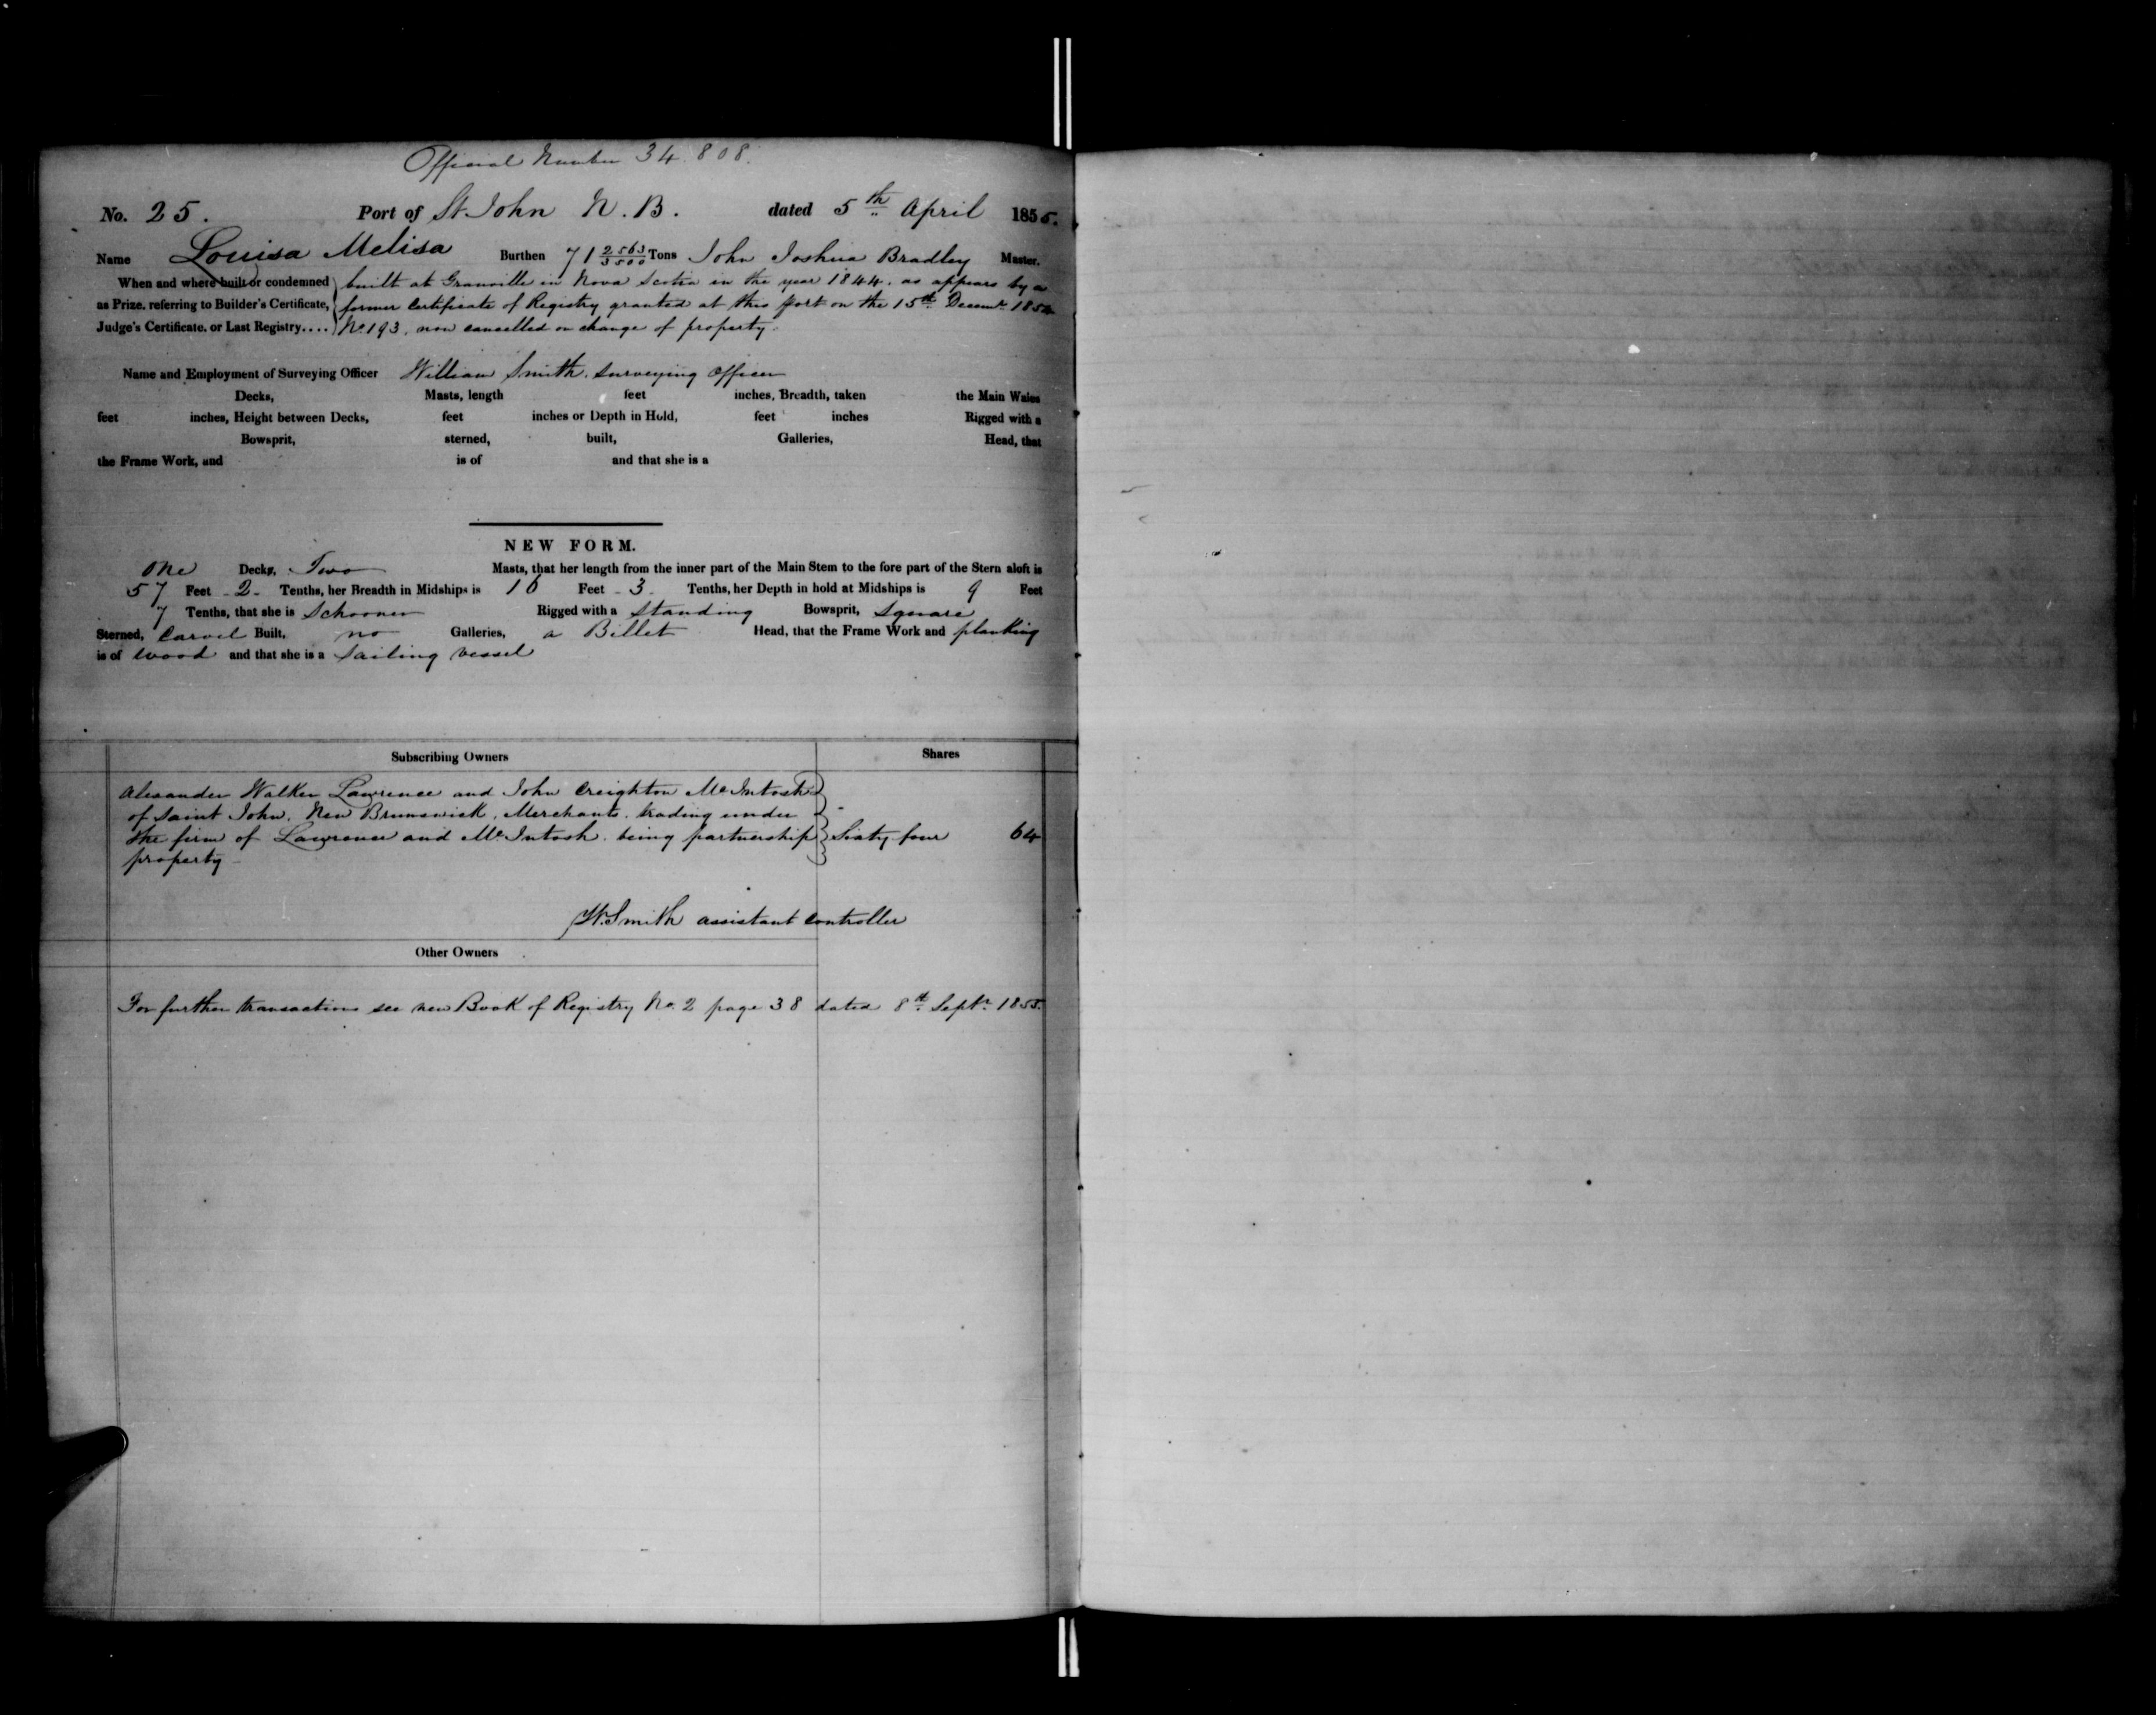 Official Number 34.808.
No. 25. Port of St. John N. B. dated 5th April 1855.
Name Louisa Melisa Burthen 71 2563/3500 Tons John Joshua Bradley Master.
When and where built or condemned built at Granville in Nova Scotia in the year 1844. as appears by a
as Prize, referring to Builder's Certificate, former Certificate of Registry granted at this port on the 15th Decemr 1854
Judge's Certificate, or Last Registry.... No. 193, now cancelled on change of property.
Name and Employment of Surveying Officer William Smith. Surveying Officer
Decks, Masts, length feet inches, Breadth, taken the Main Wales
feet inches, Height between Decks, feet inches or Depth in Hold, feet inches Rigged with a
Bowsprit, sterned, built, Galleries, Head, that
the Frame Work, and is of and that she is a
NEW FORM.
One Decks, Two Masts, that her length from the inner part of the Main Stem to the fore part of the Stern aloft is
57 Feet 2 Tenths, her Breadth in Midships is Feet 3 Tenths, her Depth in hold at Midships is 9 Feet
7 Tenths, that she is Schooner Rigged with a Standing Bowsprit, Square
Sterned, Carvel Built, no Galleries, a Billet Head, that the Frame Work and planking
is of wood and that she is a Sailing vessel
Subscribing Owners Shares
Alexander Walker Lawrence and John Creighton McIntosh
of Saint John, New Brunswick, Merchants, trading under
the firm of Lawrence and McIntosh, being partnership Sixty four 64
property
W. Smith assistant Controller
Other Owners
For further transactions see new Book of Registry No. 2 page 38 dated 8th Septr. 1855.